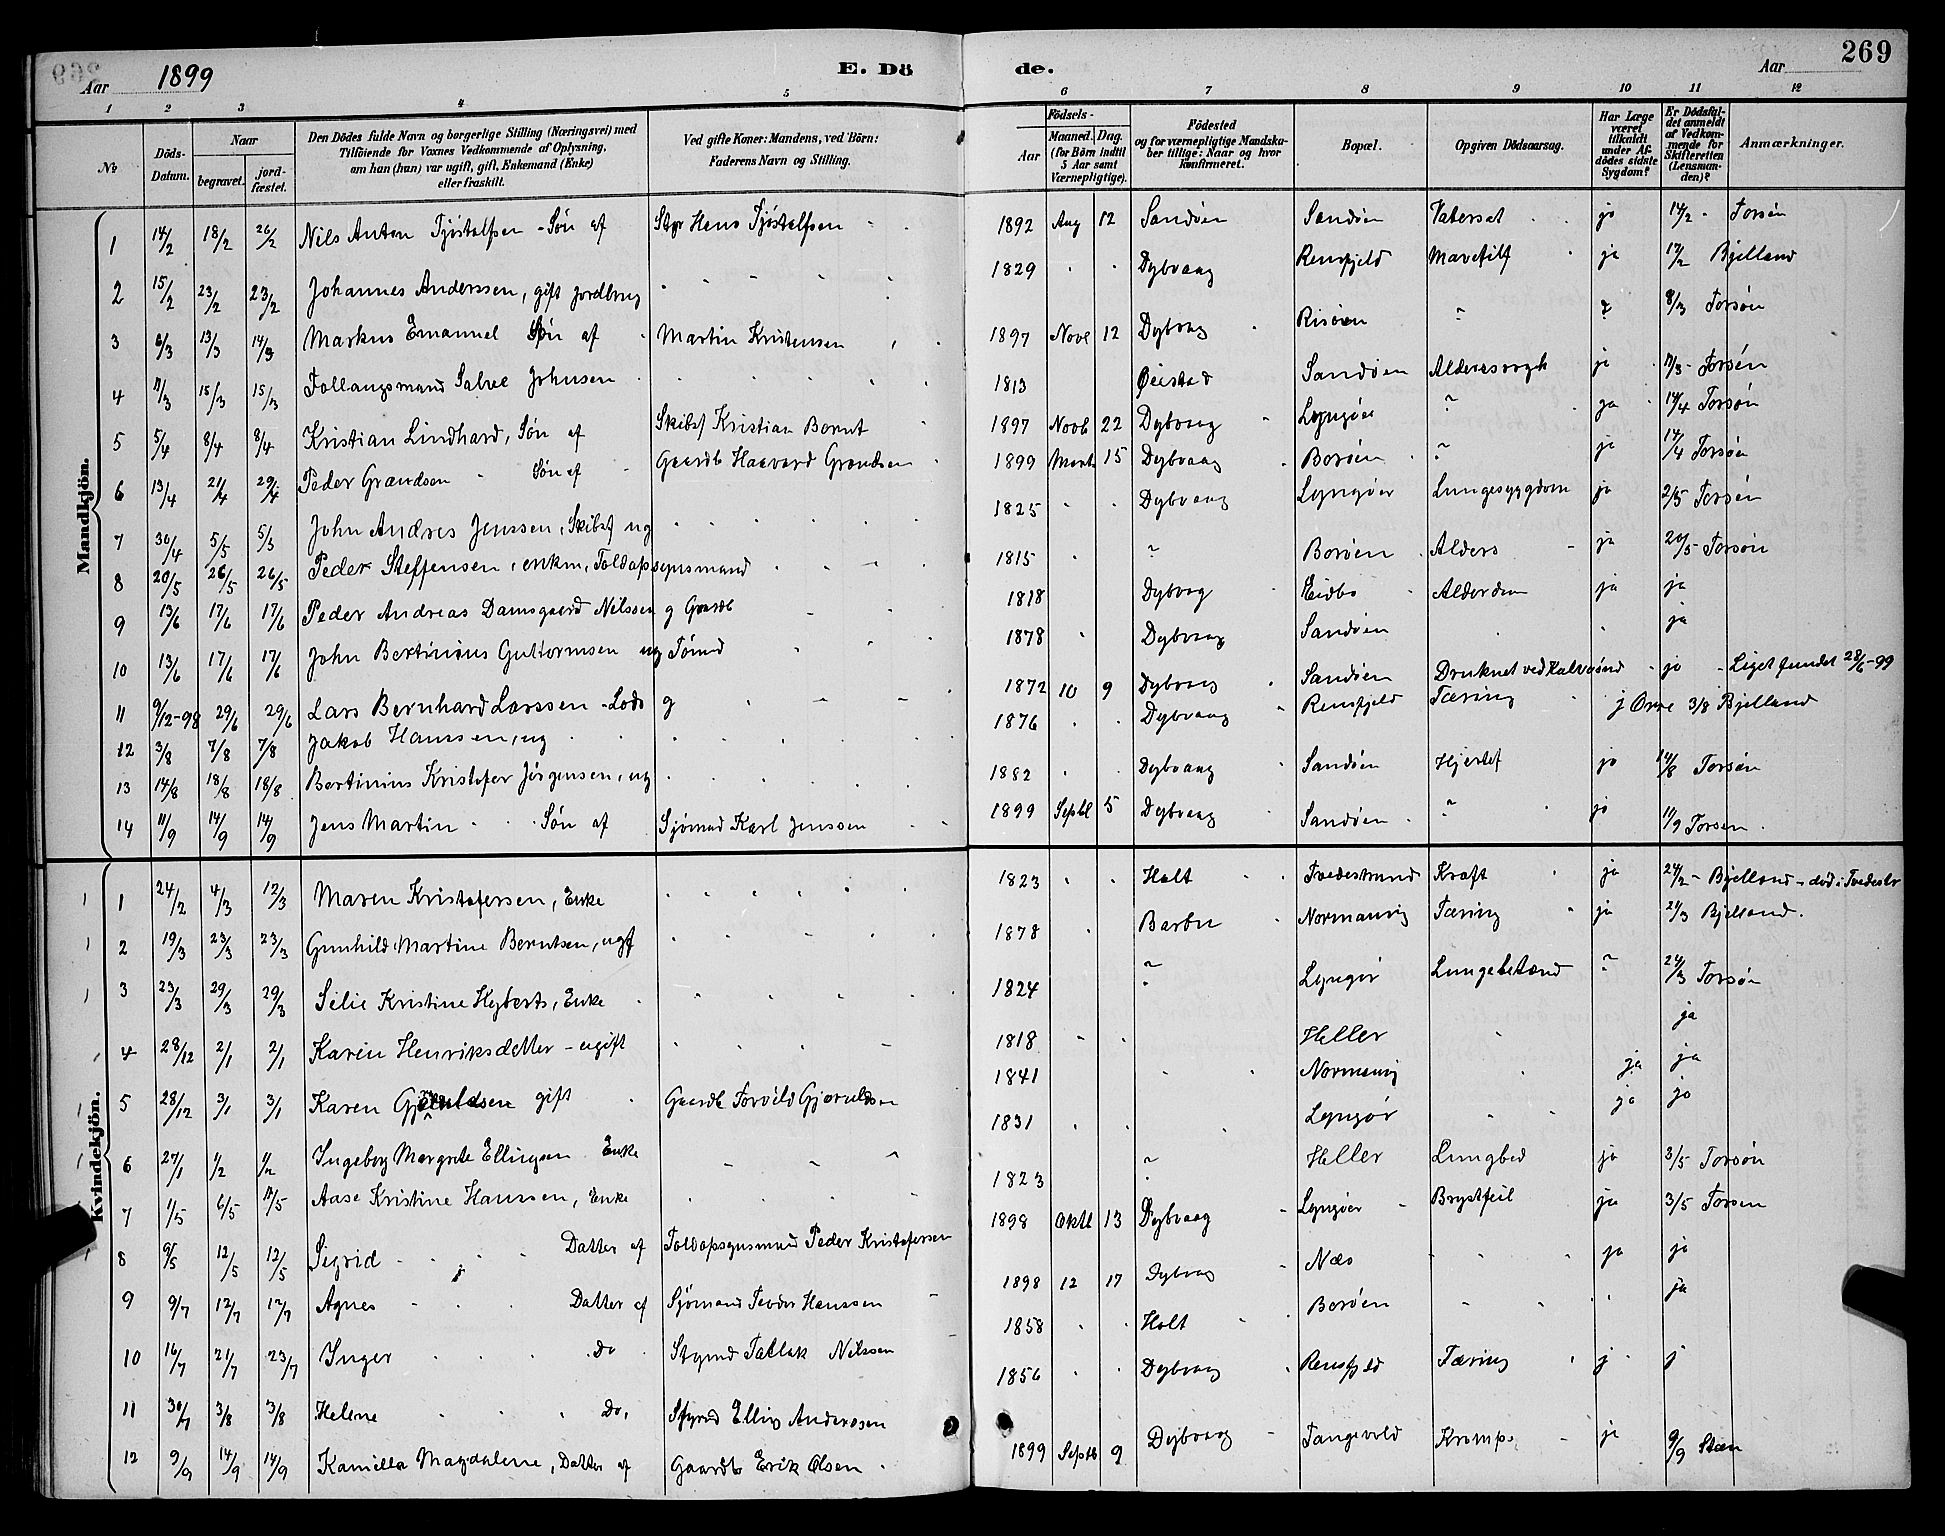 269
Aar 1899 E. Döde. Aar 269
1 2 3 4 5 6 7 8 9 10 11 12
No
Döds-Datum.
Naar
begravet.
jordfæstet.
Den Dödes fulde Navn og borgerlige Stilling (Næringsvei) med
Tilföiende for Voxnes Vedkommende af Oplysning,
om han (hun) var ugift, gift, Enkemand (Enke)
eller fraskilt.
Ved gifte Koner: Mandens, ved Börn:
Faderens Navn og Stilling.
Födsels-
Aar
Maaned. Dag.
(for Börn indtil 5 Aar samt Værnepligtige).
Födested
og for værnepligtige Mandskaber tillige: Naar og hvor konfirmeret.
Bopæl.
Opgiven Dödsaarsag.
Har Læge været tilkaldt under Afdödes sidste Sygdom?
Er Dödsfaldet anmeldt af Vedkommende for Skifteretten (Lensmanden)?
Anmærkninger.
Mandkjön.
1 14/2 18/2 26/2 Nils Anton Tjöstolfsen - Sön af Hans Tjöstolfsen 1892 Aug 12 Sandöen Sandöen Vatersot ja 14/2 - Torsön
2 15/2 23/2 23/2 Johannes Anderssen, gift Jordbrug 1829 Dybvaag Rensfjeld Mavetilf ja 17/2 Bjelland
3 6/3 13/3 14/3 Markus Emanuel Sön af Martin Kristensen 1897 Novb 12 Dybvaag Risöen ? ? 8/3 Torsön
4 11/3 15/3 15/3 Follaugsmand Salve Johnsen 1813 Öiestad Sandöen ja 11/3 - Torsön
5 5/4 8/4 8/4 Kristian Lindhard, Sön af Skibsf Kristian Bernt 1897 Novb 22 Dybvaag Lyngöer ? ja 14/4 Torsön
6 13/4 21/4 29/4 Peder Grandsen Sön af Gaardb Haavard Grandsen 1899 Marts 15 Dybvaag Boröen ? ja 14/4 Torsön
7 30/4 5/5 5/5 John Andres Jenssen, Skibsf ug 1825 Dybvaag Lyngöer Lungesyggdom ja 2/5 Torsön
8 20/5 26/5 26/5 Peder Steffensen, enkm, Toldopsynsmand 1815 ? Boröen Alders ja 20/5 Torsön
9 13/6 17/6 17/6 Peder Andreas Damsgaard Nilssen g Gaardb 1818 Dybvag Eidbo Alderdom ja ja
10 13/6 17/6 17/6 John Bertinius Guttormsen ug Tömd 1878 Dybvaag Sandöen ja
11 9/12-98 29/6 29/6 Lars Bernhard Larssen - Lods g 1872 10 9 Dybvaag Sandöen Druknet ved Kalvösund ja - Liget fundet 28/6-99
12 3/8 7/8 7/8 Jakob Hanssen, ug 1876 Dybvaag Rensfjeld Tæring j Orre 3/8 Bjelland
13 14/8 18/8 18/8 Bertinius Kristofer Jörgensen, ug 1882 Dybvaag Sandöen Hjertef ja 14/8 Torsön
14 11/9 14/9 14/9 Jens Martin Sön af Sjömnd Karl Jenssen 1899 Septb 5 Dybvaag Sandöen ? ja 11/9 Torsen
Kvindekjön.
1 24/2 4/3 12/3 Maren Kristofersen, Enke 1823 Holt Tvedestrand Kræft ja 24/2 - Bjelland - död i Tvedestr
2 19/3 23/3 23/3 Gunhild Martine Berntsen, ugf 1878 Barbu Normanvig Tæring ja 21/3 Bjelland.
3 23/3 29/3 29/3 Silie Kristine Hyberts, Enke 1824 ? Lyngör Lungebetænd ? 24/3 Torsön
4 28/12 2/1 2/1 Karen Henriksdatter - ugift 1818 Heller ja
5 28/12 3/1 3/1 Karen gift Gaardb Torvild Gjeruldsen 1841 Normanvig ja ja
6 27/1 1/2 1/2 Ingeborg Margrete Ellingsen Enke 1831 Lyngör ja ja
7 1/5 6/5 11/5 Aase Kristine Hanssen, Enke 1823 ? Heller Lungbed ja 3/5 Torsön
8 9/5 12/5 12/5 Sigrid Datter af Toldopsynsmand Peder Kristofersen 1898 Oktb 13 Dybvaag Lyngöer Brystfeil ja 3/5 Torsen
9 9/7 12/7 12/7 Agnes Datter af Sjömand Teodor Hanssen 1898 12 17 Dybvag Næs ja ja
10 16/7 21/7 23/7 Inger Do Styrmd Tallak Nilssen 1858 Holt Boröen ja
11 30/7 3/8 3/8 Helene Do, Styrmd Elling Anderssen 1856 Dybvaag Rensfjeld Tæring j j
12 9/9 14/9 14/9 Kamilla Magdalene, Datter af Gaardb Erik Olsen 1899 Septb 9 Dybvaag Tangevold Krampe ja 9/9 Steen